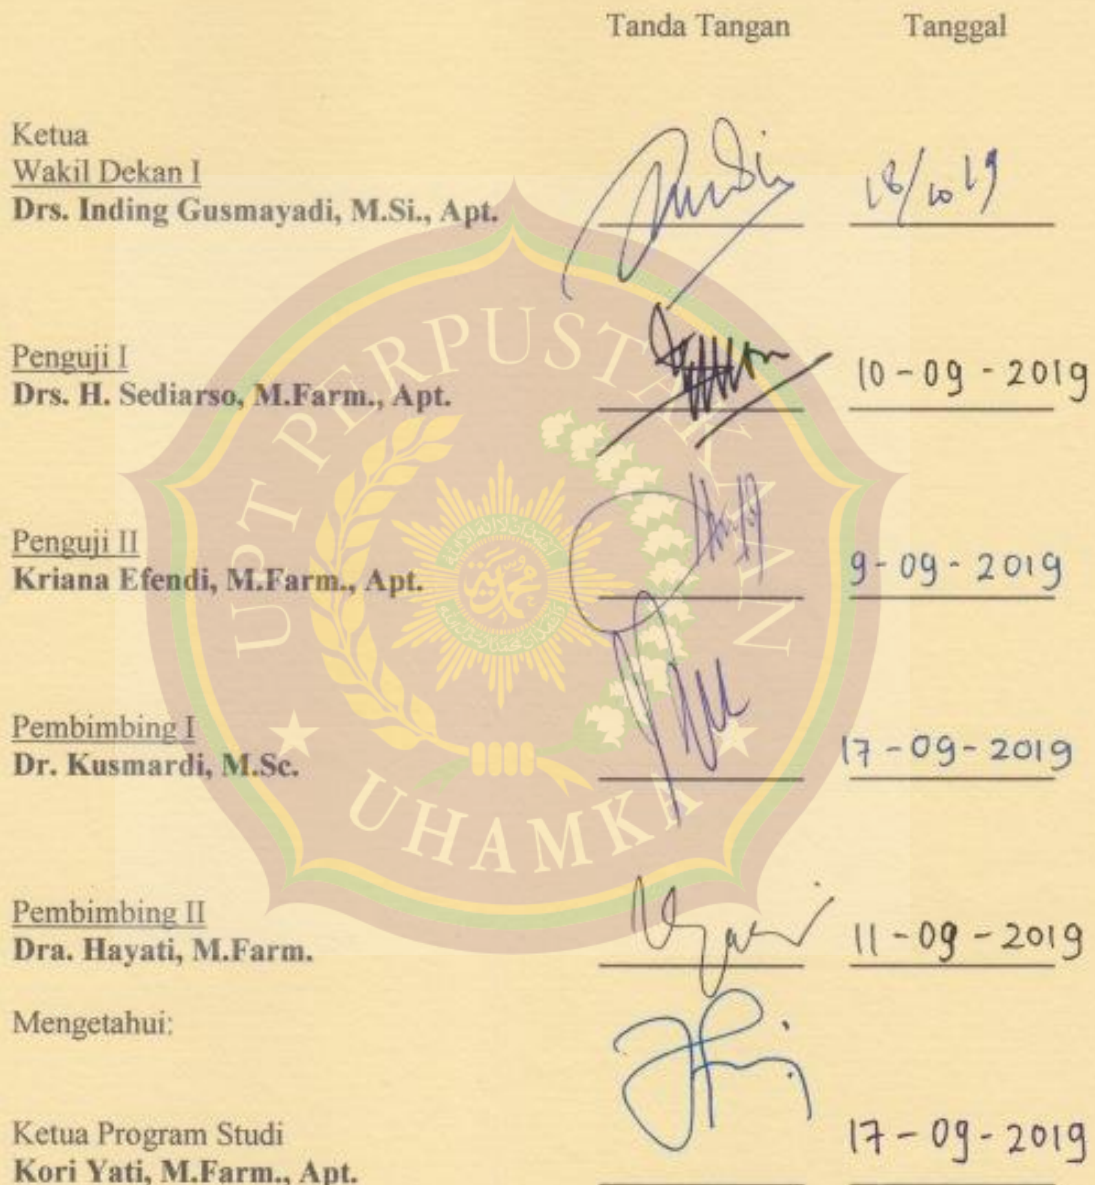 Tanda Tangan Tanggal
Ketua
Wakil Dekan I
Drs. Inding Gusmayadi, M.Si., Apt. 18/10 19
Penguji I
Drs. H. Sediarso, M.Farm., Apt. 10-09-2019
Penguji II
Kriana Efendi, M.Farm., Apt. 9-09-2019
Pembimbing I
Dr. Kusmardi, M.Sc. 17-09-2019
Pembimbing II
Dra. Hayati, M.Farm. 11-09-2019
Mengetahui:
Ketua Program Studi
Kori Yati, M.Farm., Apt. 17-09-2019
UPT PERPUSTAKAAN
UHAMKA